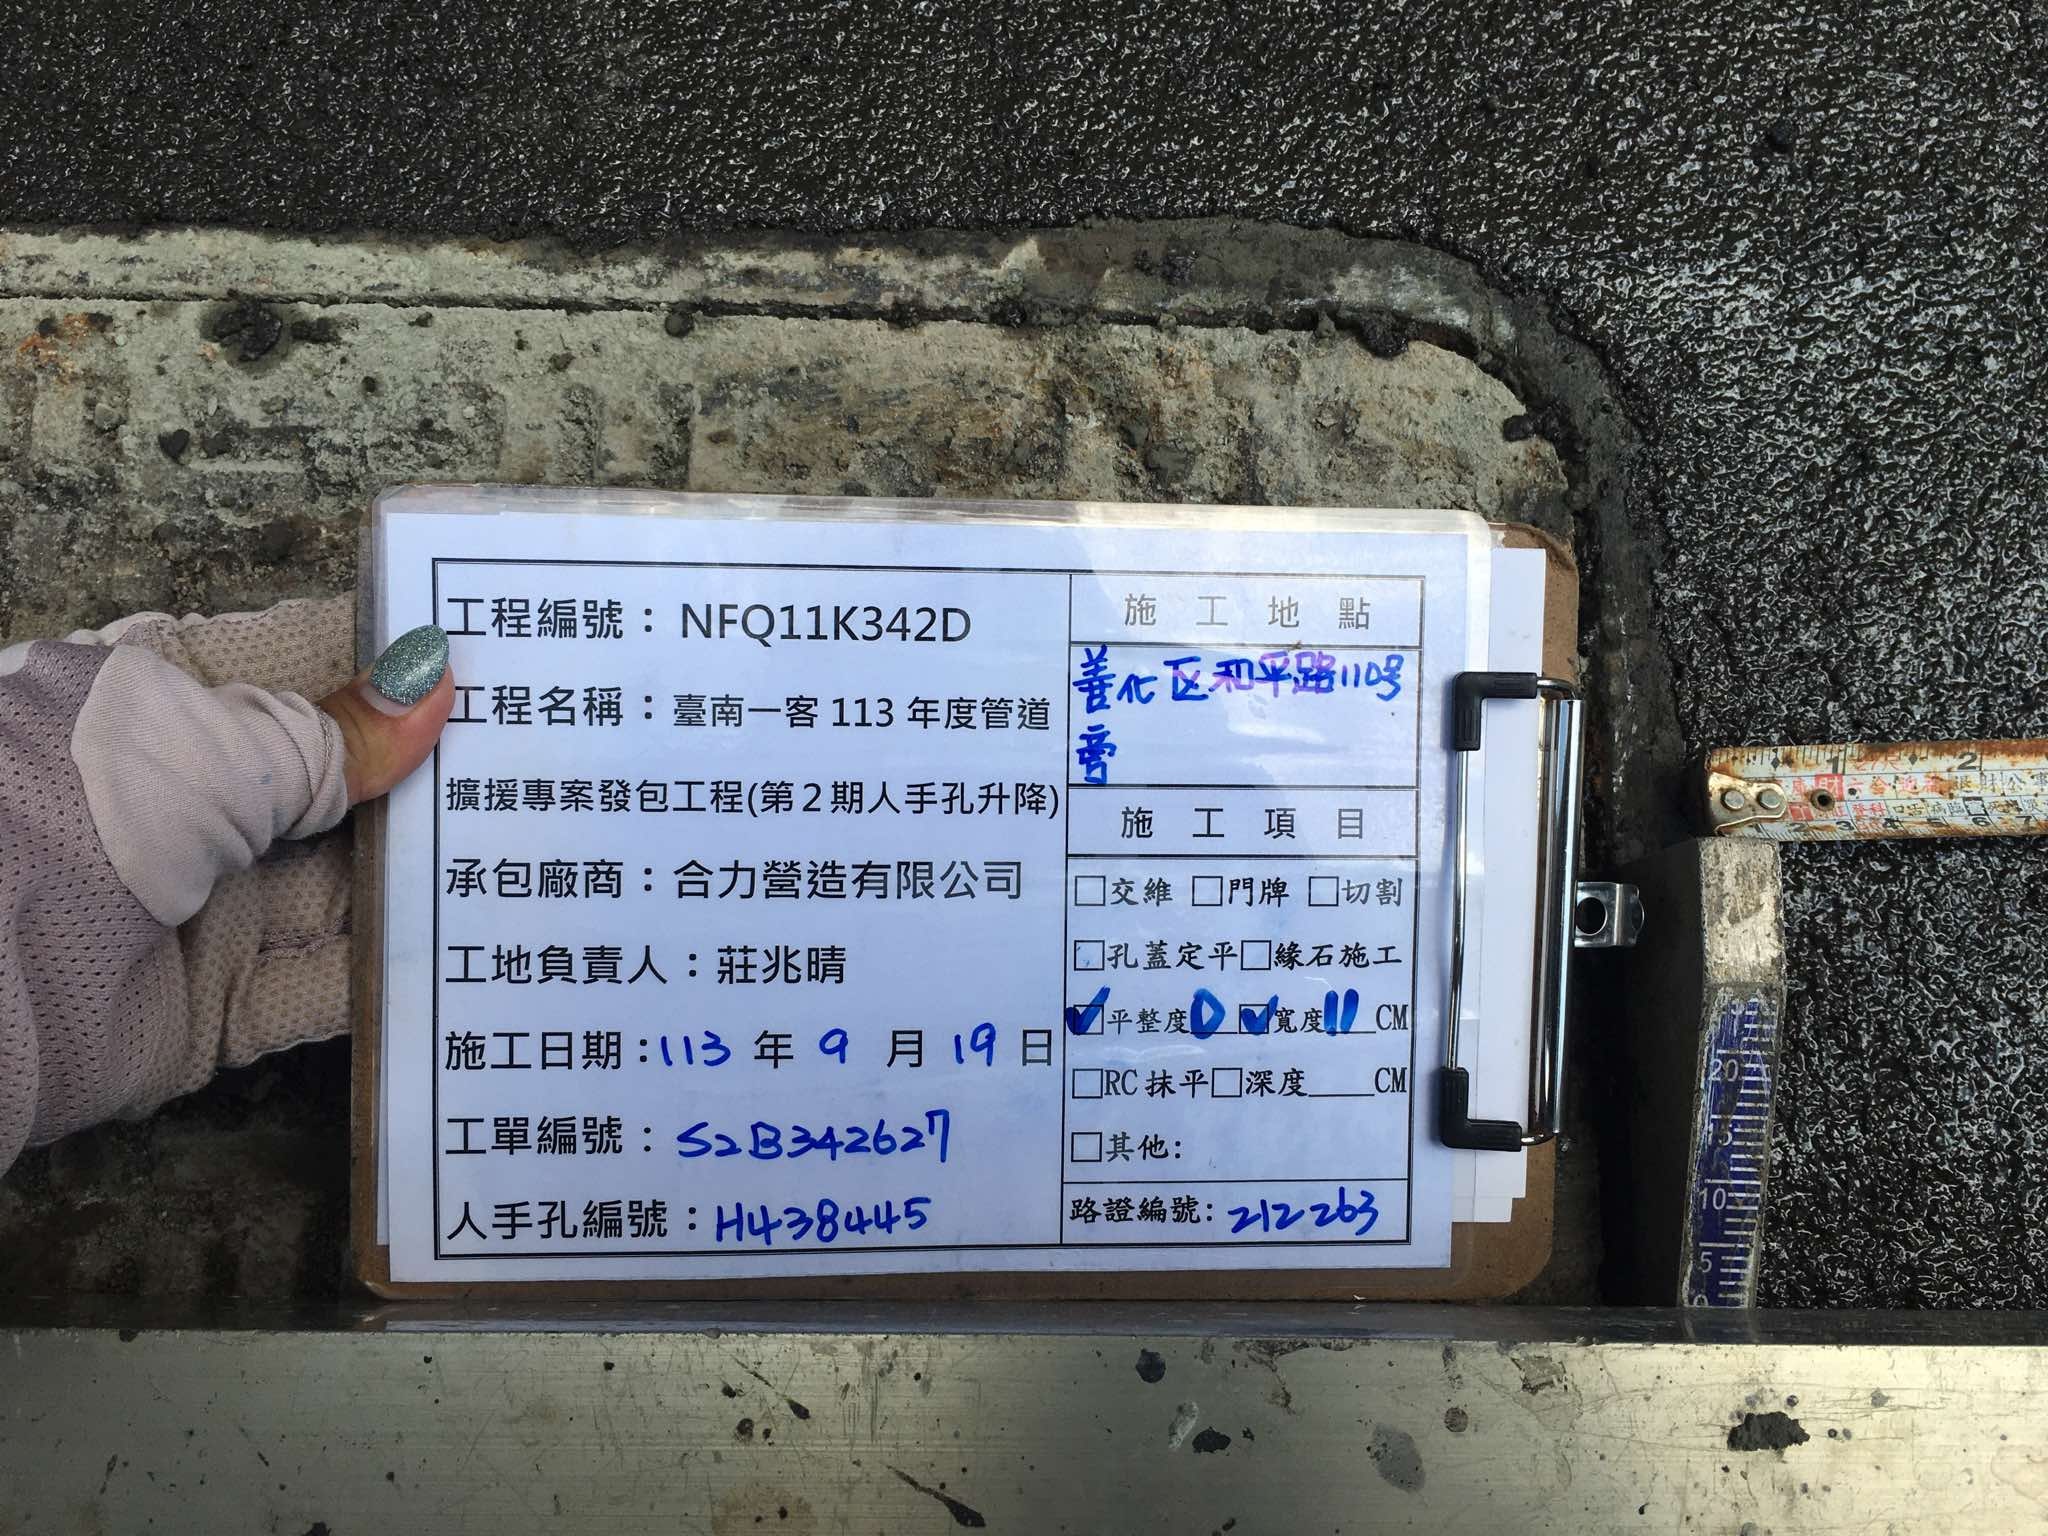 工程編號：NFQ11K342D
工程名稱：臺南一客113年度管道
擴援專案發包工程(第2期人手孔升降)
承包廠商：合力營造有限公司
工地負責人：莊兆晴
施工日期：113年9月19日
工單編號：S2B342627
人手孔編號：H438445
施工地點
善化区和平路110号
旁
施工項目
□交維 □門牌 □切割
□孔蓋定平□緣石施工
☑平整度0 ☑寬度11 CM
□RC抹平□深度____CM
□其他:
路證編號：212263
1 2
1 2 3 4 5 6 7
20
15
10
5
0